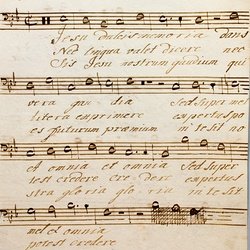 Jesu dulcis memoria dans
Nec lingua valet dicere nec
Sis Jesu nostrum gaudium qui
vera gau dia Sed super me
litera exprimere expertus po
es futurum præmium in te sit no
et omnia et omnia Sed super
test credere cre dere expertus
stra gloria glo ria in te sit
mel et omnia
potest credere